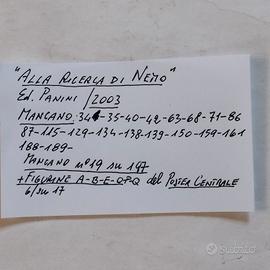 "ALLA RICERCA DI NEMO"
ED. PANINI / 2003
MANCANO: 34-35-40-42-63-68-71-86
87-115-129-134-138-139-150-159-161
188-189-
MANCANO nº19 SU 197
+ FIGURINE A-B-E-O-P-Q del POSTER CENTRALE
6/SU 17
Subito